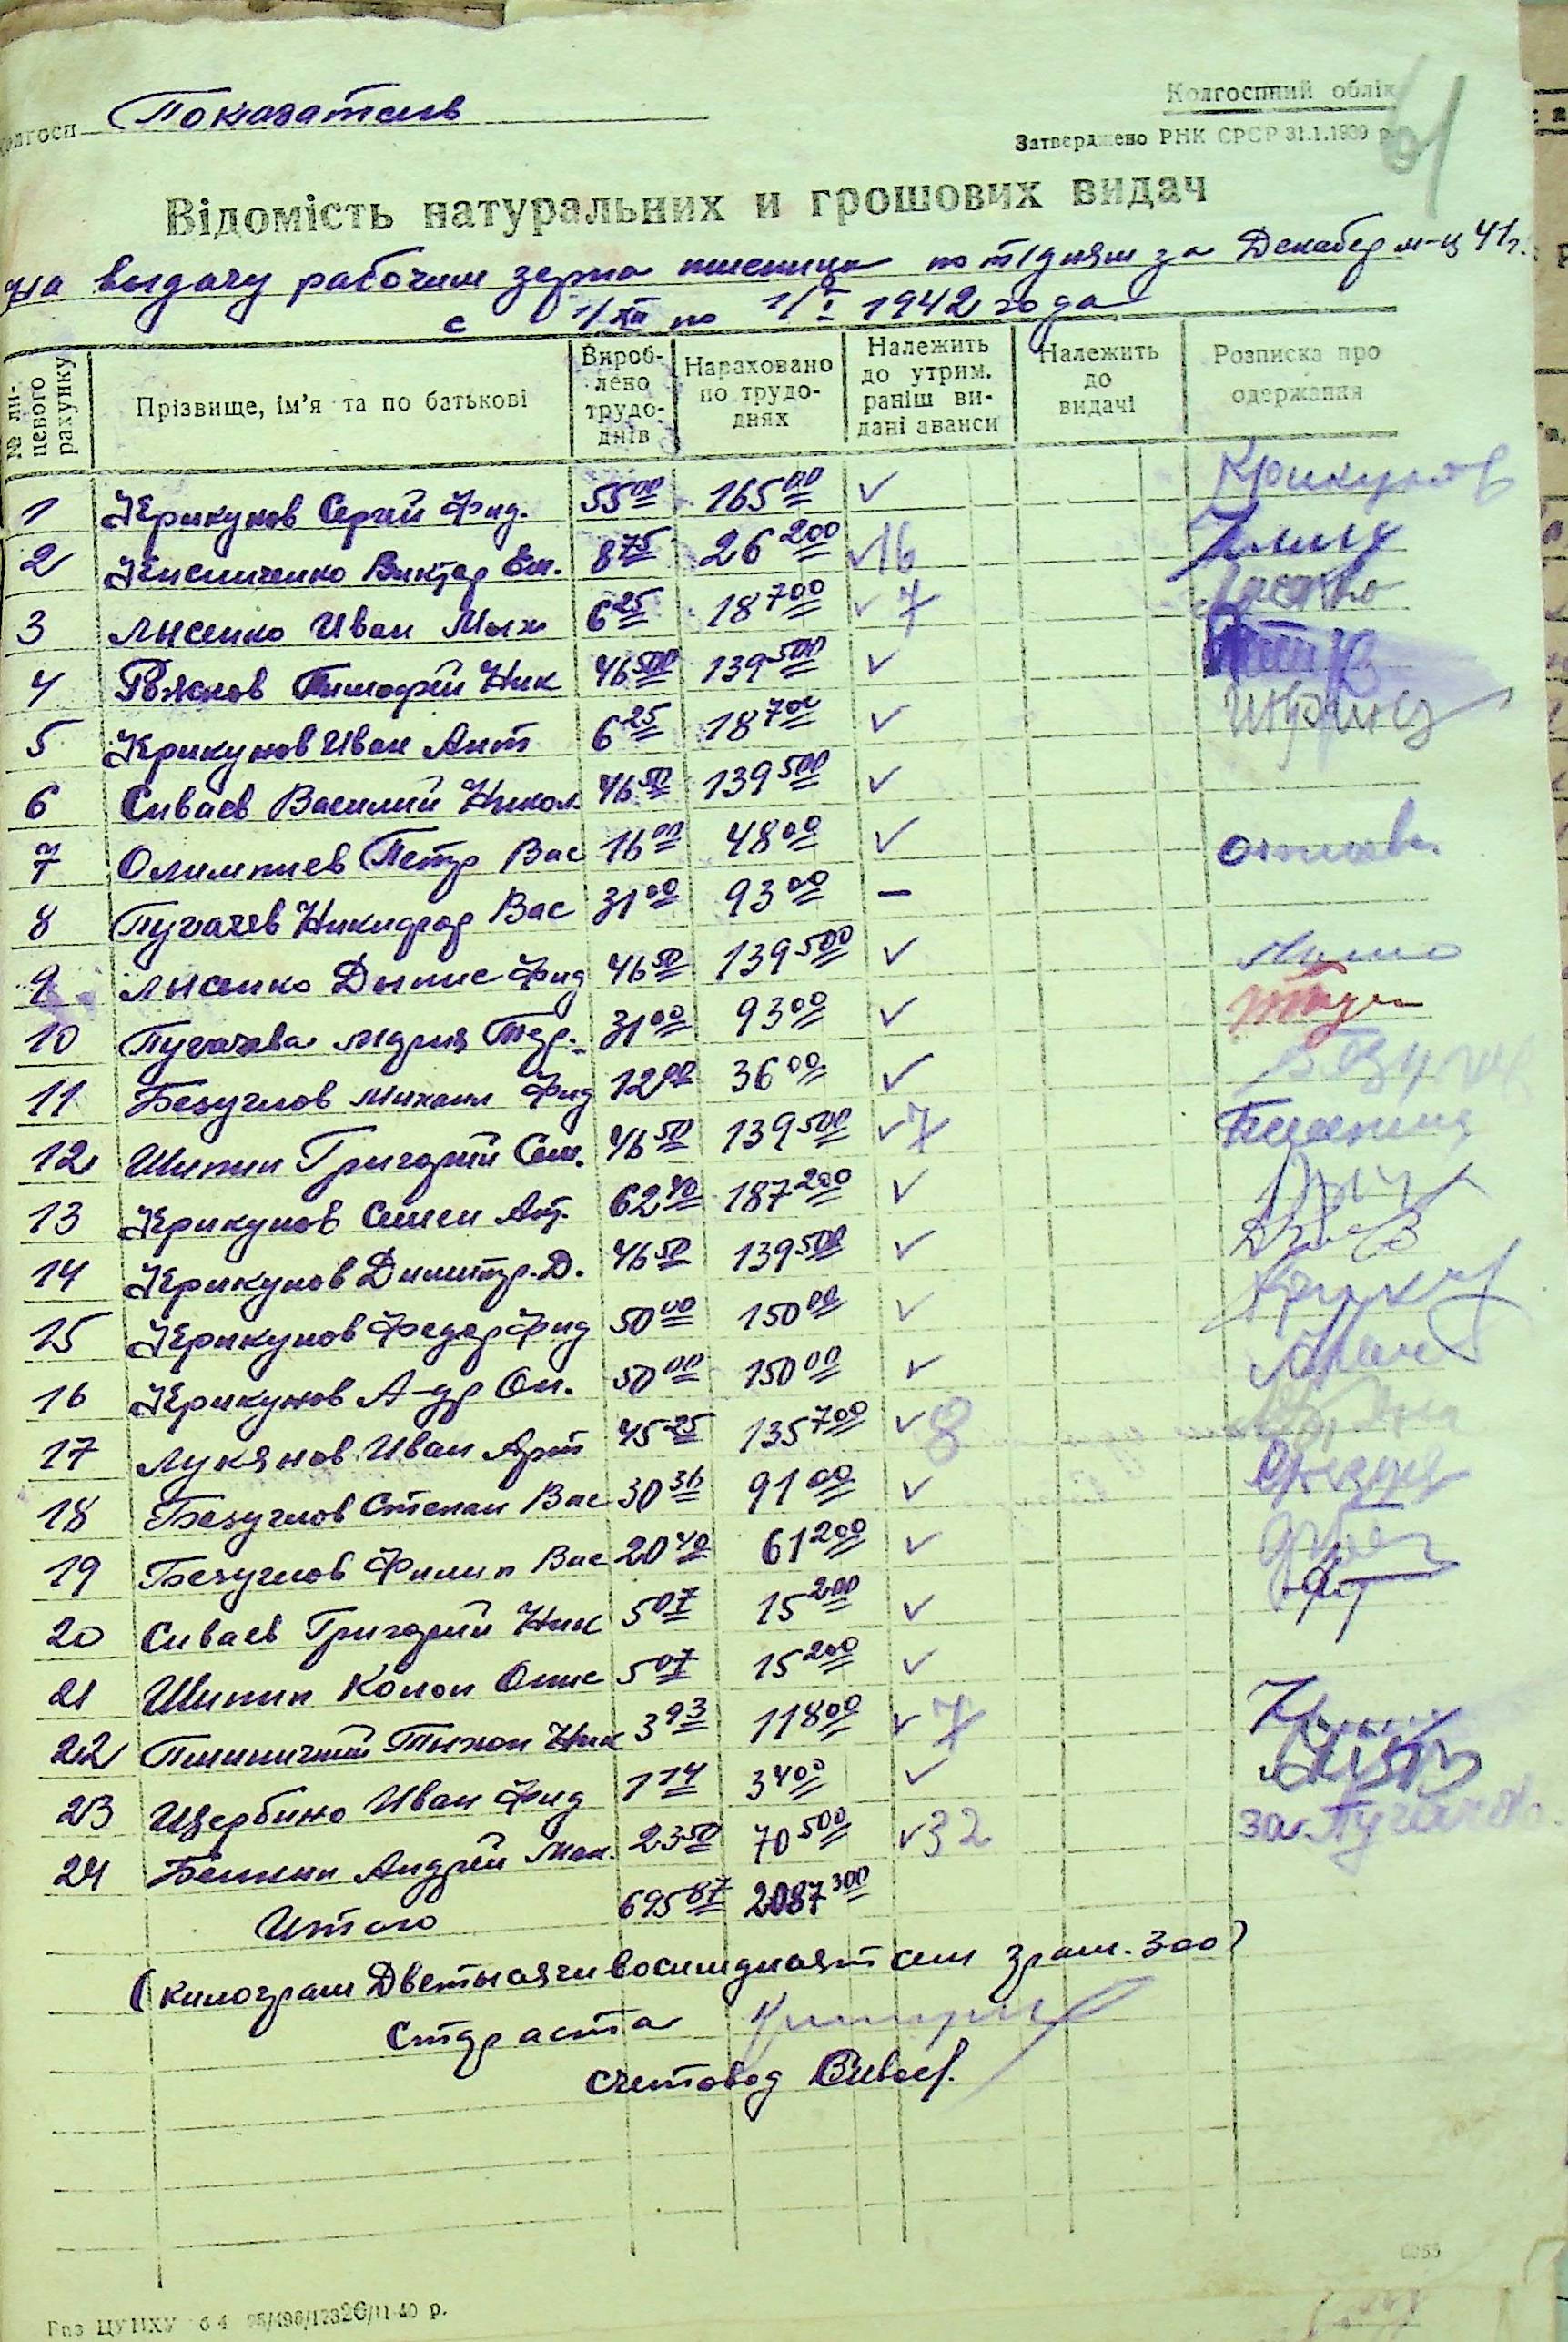 Колгосп Показатель
Колгоспний облік
61
Затверджено РНК СРСР 31.1.1939 р.
Відомість натуральних и грошових видач
на выдачу рабочим зерна пшеница по т/дням за Декабер м-ц 41 г.
с 1/XII по 1/I 1942 года
№ ли-цевого рахунку | Прізвище, ім'я та по батькові | Вироб-лено трудо-днів | Нараховано по трудо-днях | Належить до утрим. раніш ви-дані аванси | Належить до видачі | Розписка про одержання
1 Крикунов Сергей Фид. 55 00 165 00 ✓ Крикунов
2 Кисниченко Виктор Ем. 8 75 26 200 ✓ 16
3 Лисенко Иван Мих 6 25 18 700 ✓ 7
4 Рожнов Тимофей Ник 46 500 139 500 ✓
5 Крикунов Иван Ант 6 25 18 700 ✓
6 Сиваев Василий Никол. 46 50 139 500 ✓
7 Олимпиев Петр Вас 16 00 48 00 ✓
8 Пугачев Никифор Вас 31 00 93 00 —
9 Лисенко Дынис Фид 46 50 139 500 ✓
10 Пугачева Мария Тер. 31 00 93 00 ✓
11 Безуглов Михаил Фид 12 00 36 00 ✓
12 Шипин Григорий Сем. 46 50 139 500 ✓ 7
13 Крикунов Семен Ант. 62 40 187 200 ✓
14 Крикунов Димитр. Д. 46 50 139 500 ✓
15 Крикунов Федор Фид 50 00 150 00 ✓
16 Крикунов А-др Он. 50 00 150 00 ✓
17 Лукянов Иван Арт 45 25 135 700 ✓ 8
18 Безуглов Степан Вас 30 36 91 00 ✓
19 Безуглов Филип Вас 20 40 61 200 ✓
20 Сиваев Григорий Ник 5 07 15 200 ✓
21 Шипин Конон Онис 5 07 15 200 ✓
22 Пшиничний Тихон Ник 3 93 11 800 ✓ 7
23 Щербино Иван Фид 1 14 3 400 ✓
24 Бешкин Андрей Мак. 23 50 70 500 ✓ 32 за Пугачов
Итого 695 87 2087 300
(килограм Две тысячи восимдисят сем грам. 300)
Стараста
счетовод Сиваев.
6055
Газ ЦУНХУ б 4 95/496/17326/11-40 р.